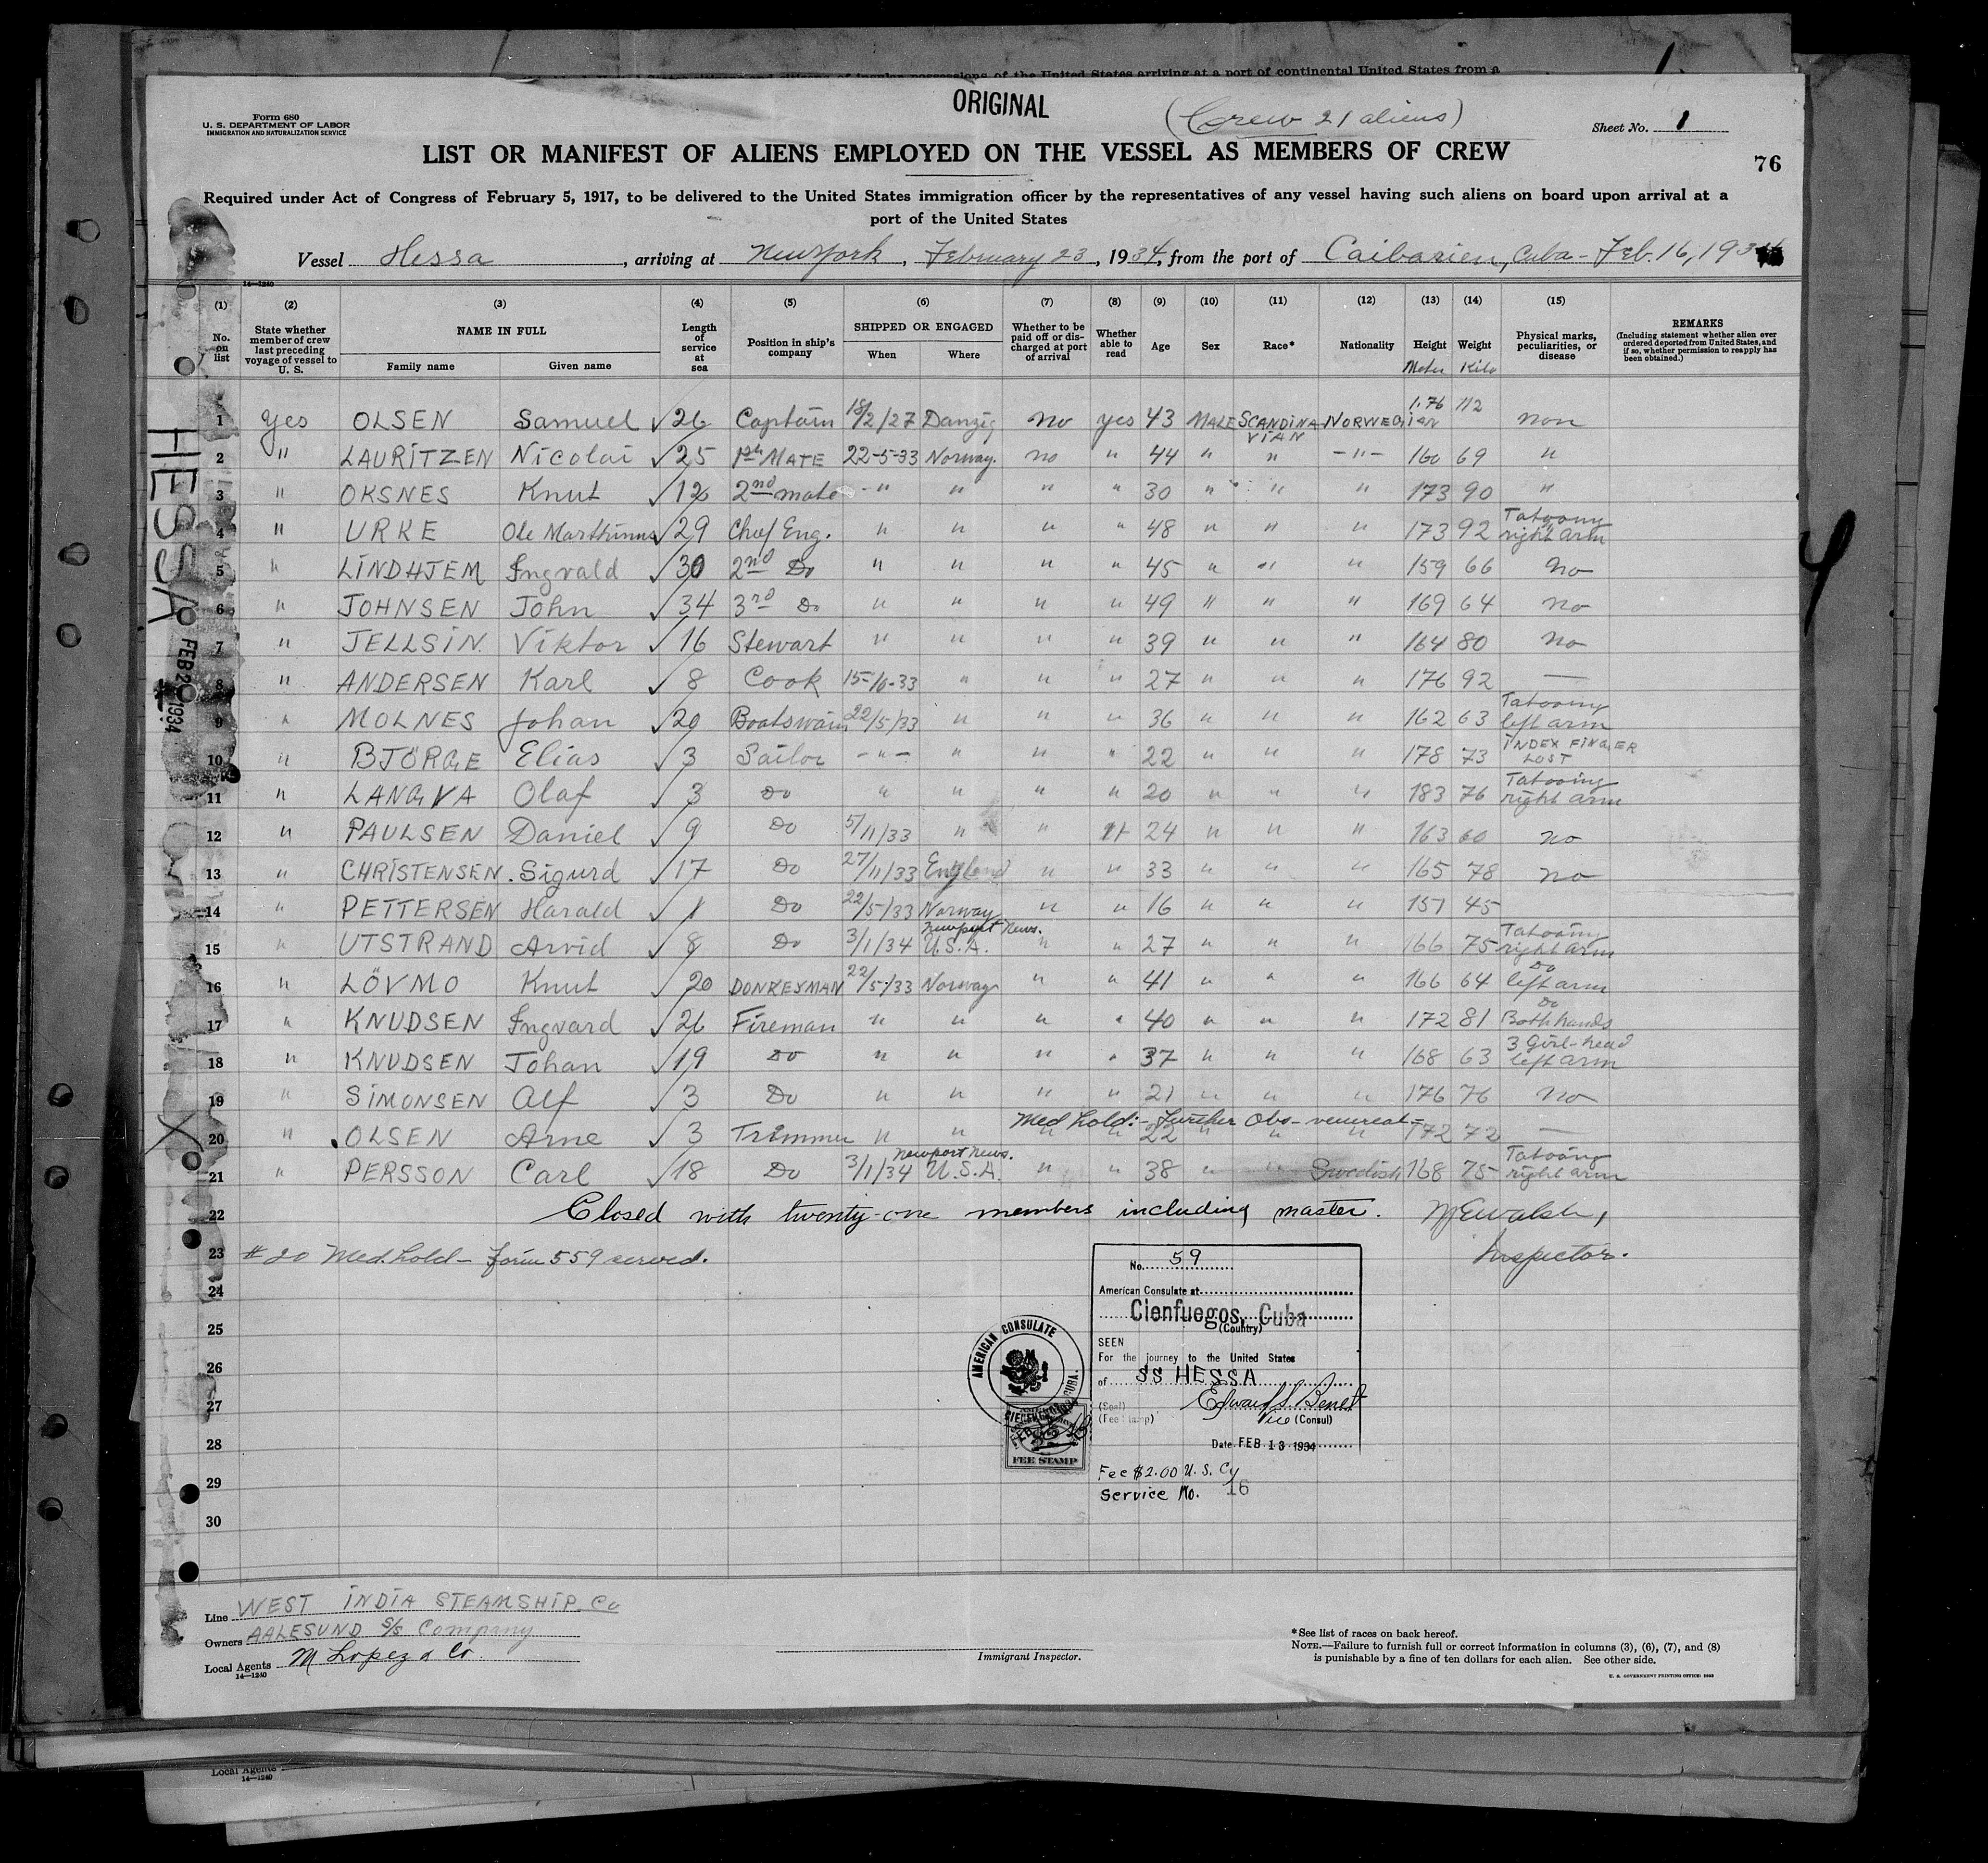 of insular possessions of the United States arriving at a port of continental United States from a
ORIGINAL
(Crew 21 aliens)
Form 680
U. S. DEPARTMENT OF LABOR
IMMIGRATION AND NATURALIZATION SERVICE
Sheet No. 1
LIST OR MANIFEST OF ALIENS EMPLOYED ON THE VESSEL AS MEMBERS OF CREW
76
Required under Act of Congress of February 5, 1917, to be delivered to the United States immigration officer by the representatives of any vessel having such aliens on board upon arrival at a
port of the United States
Vessel Hessa, arriving at New York, February 23, 1934, from the port of Caibarien, Cuba - Feb. 16, 1934
14—1240
(1) (2) (3) (4) (5) (6) (7) (8) (9) (10) (11) (12) (13) (14) (15)
No. on list State whether member of crew last preceding voyage of vessel to U. S. NAME IN FULL Family name Given name Length of service at sea Position in ship's company SHIPPED OR ENGAGED When Where Whether to be paid off or discharged at port of arrival Whether able to read Age Sex Race* Nationality Height Meter Weight Kilo Physical marks, peculiarities, or disease REMARKS (Including statement whether alien ever ordered deported from United States, and if so, whether permission to reapply has been obtained.)
1 Yes OLSEN Samuel √ 26 Captain 18/2/27 Danzig No yes 43 MALE SCANDINAVIAN NORWEGian 1.76 112 non
2 " LAURITZEN Nicolai √ 25 1st MATE 22-5-33 Norway. no " 44 " " -"- 160 69 "
3 " OKSNES Knut √ 12 2nd mate -" " " " 30 " " " 173 90 "
4 " URKE Ole Marthinus √ 29 Chief Eng. " " " " 48 " " " 173 92 Tatoony right arm
5 " LINDHJEM Ingvald √ 30 2nd Do " " " " 45 " " " 159 66 No
6 " JOHNSEN John √ 34 3rd Do " " " " 49 " " " 169 64 No
7 " JELLSIN. Viktor √ 16 Stewart " " " " 39 " " " 164 80 No
8 " ANDERSEN Karl √ 8 Cook 15-/6-33 " " " 27 " " " 176 92 —
9 " MOLNES Johan √ 20 Boatswain 22/5/33 " " " 36 " " " 162 63 Tatooing left arm
10 " BJÖRGE Elias √ 3 Sailor -"- " " " 22 " " " 178 73 INDEX FINGER LOST
11 " LANGVA Olaf √ 3 Do " " " " 20 " " " 183 76 Tatooing right arm
12 " PAULSEN Daniel √ 9 Do 5/11/33 " " " 24 " " " 163 60 no
13 " CHRISTENSEN. Sigurd √ 17 Do 27/11/33 England " " 33 " " " 165 78 no
14 " PETTERSEN Harald √ 1 Do 22/5/33 Norway " " 16 " " " 151 45
15 " UTSTRAND Arvid √ 8 Do 3/1/34 Newport News. U.S.A. " " 27 " " " 166 75 Tatooing right arm
16 " LÖVMO Knut √ 20 DONKEYMAN 22/5/33 Norway " " 41 " " " 166 64 Do left arm
17 " KNUDSEN Ingvard √ 26 Fireman " " " " 40 " " " 172 81 Do Both hands
18 " KNUDSEN Johan √ 19 Do " " " " 37 " " " 168 63 3 Girl-head left arm
19 " SIMONSEN Alf √ 3 Do " " " " 21 " " " 176 76 No
Med hold:- Further Obs - venereal -
20 " OLSEN Arne √ 3 Trimmer " " " " 22 " " " 172 72 —
21 " PERSSON Carl √ 18 Do 3/1/34 Newport News. U.S.A. " " 38 " " Swedish 168 75 Tatooing right arm
22 Closed with twenty-one members including master. Walsh,
23 # 20 Med. hold - Form 559 served. Inspector.
24
25
26
27
28
29
30
No. 59
American Consulate at
Cienfuegos, Cuba
(Country)
SEEN
For the journey to the United States
of SS HESSA
(Seal) Edward S. Benet
(Fee Stamp) Vice (Consul)
Date FEB 13 1934
Fee $2.00 U. S. Cy
Service No. 16
AMERICAN CONSULATE
CIENFUEGOS, CUBA.
FEE STAMP
HESSA
FEB 2 1934
Line WEST INDIA STEAMSHIP Co
Owners AALESUND S/S Company
Local Agents M Lopez & Co.
14—1240
Immigrant Inspector.
*See list of races on back hereof.
NOTE.—Failure to furnish full or correct information in columns (3), (6), (7), and (8)
is punishable by a fine of ten dollars for each alien. See other side.
U. S. GOVERNMENT PRINTING OFFICE: 1933
Local Agents
14—1240